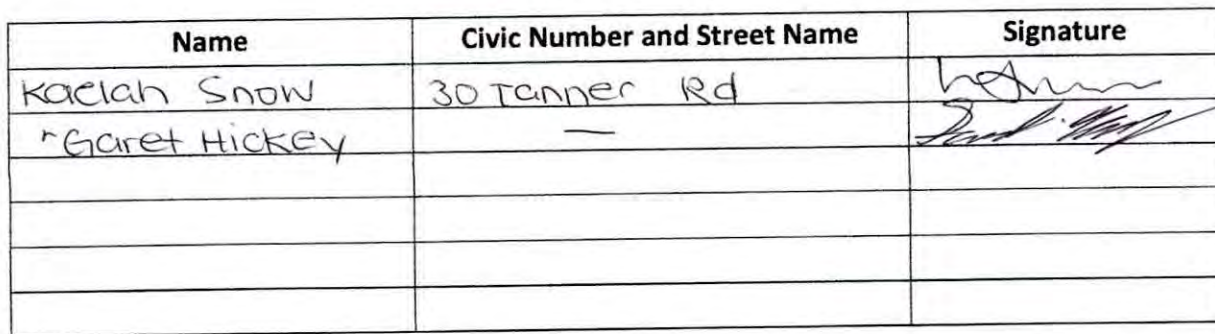 Name Civic Number and Street Name Signature
Kaelah Snow 30 Tanner Rd
Garet Hickey —